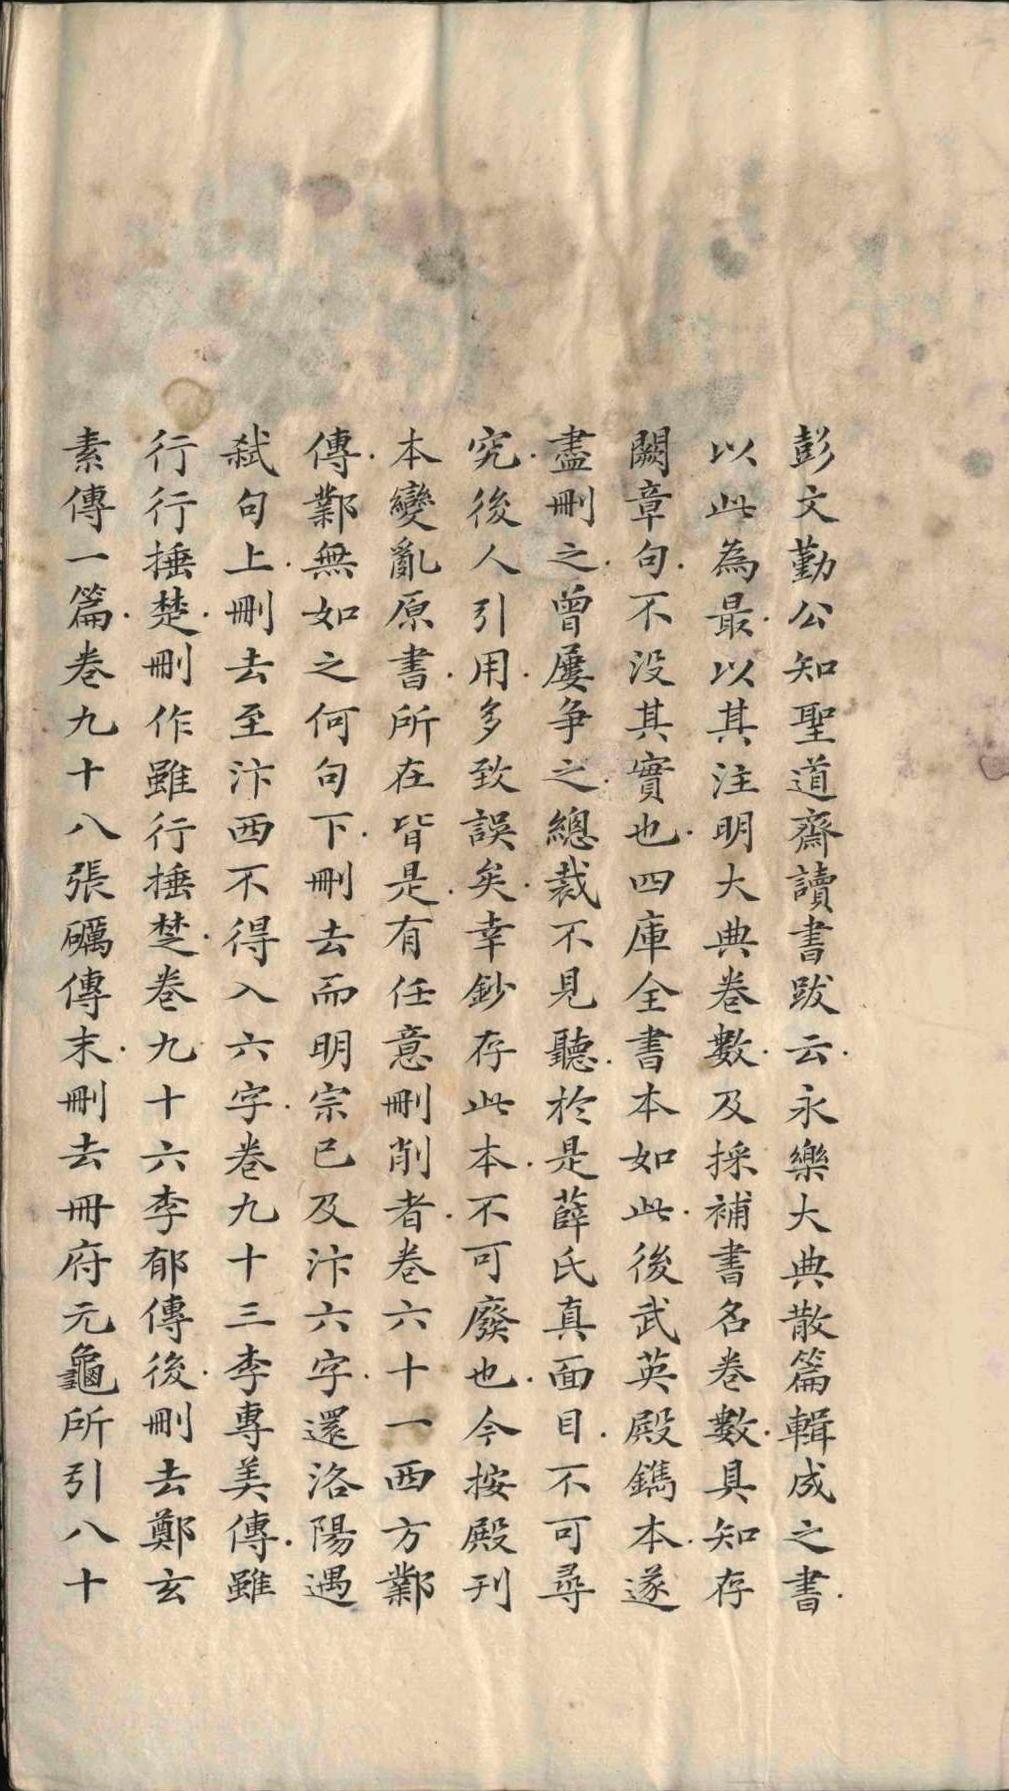 彭文勤公知聖道齋讀書跋云永樂大典散篇輯成之書
以此為最以其注明大典卷數及採補書名卷數具知存
闕章句不没其實也四庫全書本如此後武英殿鐫本遂
盡刪之曾屢争之總裁不見聽於是薛氏真面目不可尋
究後人引用多致誤矣幸鈔存此本不可廢也今按殿刊
本變亂原書所在皆是有任意刪削者卷六十一西方鄴
傳鄴無如之何句下刪去而明宗已及汴六字還洛陽遇
弑句上刪去至汴西不得入六字卷九十三李專美傳雖
行行捶楚刪作雖行捶楚卷九十六李郁傳後刪去鄭玄
素傳一篇卷九十八張礪傳末刪去冊府元龜所引八十